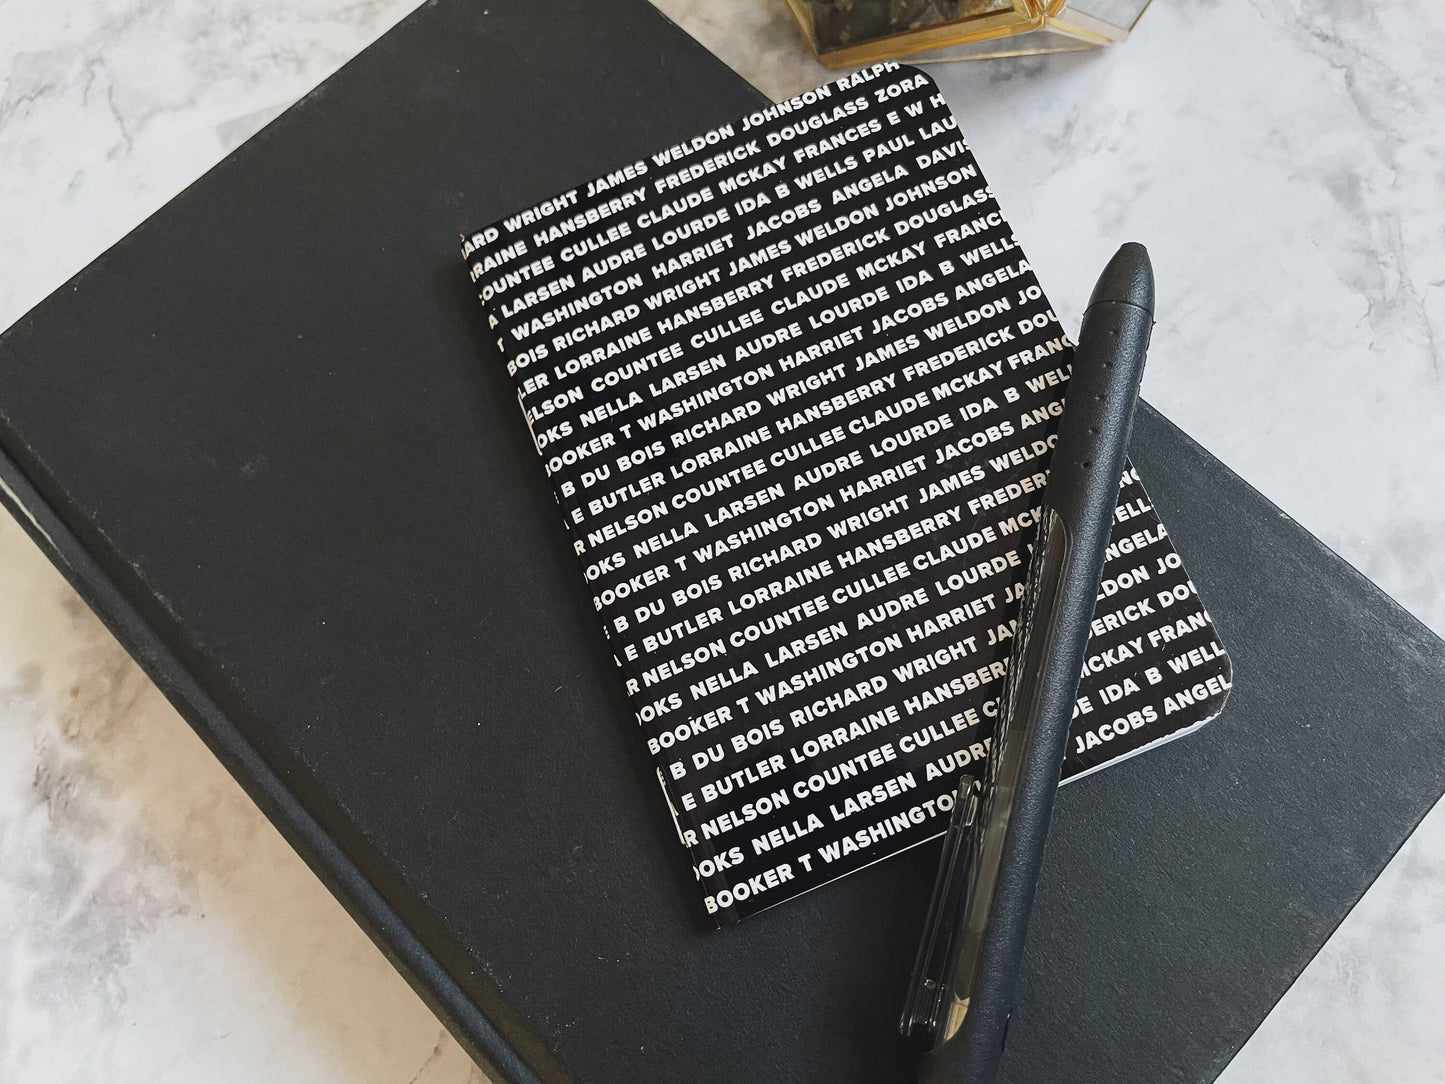 ARD WRIGHT JAMES WELDON JOHNSON RALPH
RAINE HANSBERRY FREDERICK DOUGLASS ZORA
OUNTEE CULLEE CLAUDE MCKAY FRANCES E W H
A LARSEN AUDRE LOURDE IDA B WELLS PAUL LAU
T WASHINGTON HARRIET JACOBS ANGELA DAVIS
BOIS RICHARD WRIGHT JAMES WELDON JOHNSON
LER LORRAINE HANSBERRY FREDERICK DOUGLASS
ELSON COUNTEE CULLEE CLAUDE MCKAY FRANCE
OKS NELLA LARSEN AUDRE LOURDE IDA B WELLS
BOOKER T WASHINGTON HARRIET JACOBS ANGELA
B DU BOIS RICHARD WRIGHT JAMES WELDON JO
E BUTLER LORRAINE HANSBERRY FREDERICK DOU
R NELSON COUNTEE CULLEE CLAUDE MCKAY FRANC
OOKS NELLA LARSEN AUDRE LOURDE IDA B WEL
BOOKER T WASHINGTON HARRIET JACOBS ANG
B DU BOIS RICHARD WRIGHT JAMES WELDO
E BUTLER LORRAINE HANSBERRY FREDER
R NELSON COUNTEE CULLEE CLAUDE MCK
OOKS NELLA LARSEN AUDRE LOURDE ELL
BOOKER T WASHINGTON HARRIET JA ANGELA
B DU BOIS RICHARD WRIGHT JAM LDON JO
E BUTLER LORRAINE HANSBER ERICK DOU
R NELSON COUNTEE CULLEE C CKAY FRANC
OOKS NELLA LARSEN AUDRE DE IDA B WELL
BOOKER T WASHINGTO JACOBS ANGEL